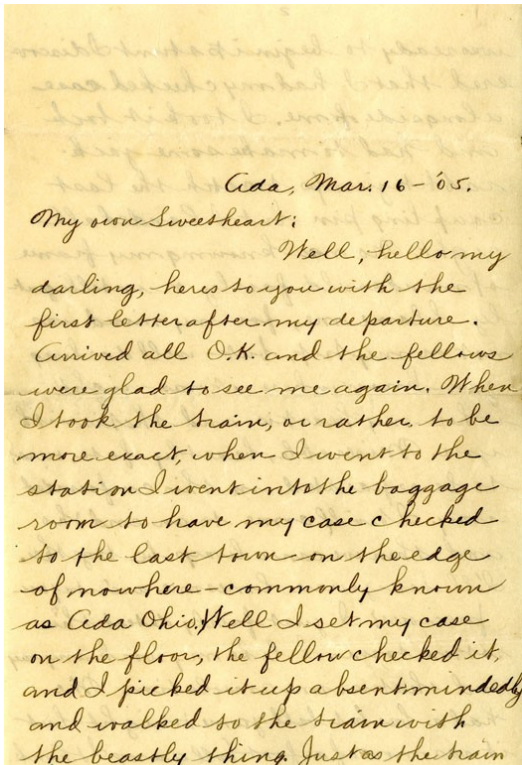 Ada, Mar. 16-'05.
My own Sweetheart:
Well, hello my
darling, heres to you with the
first letter after my departure.
Arrived all O.K. and the fellows
were glad to see me again. When
I took the train, or rather, to be
more exact, when I went to the
station I went into the baggage
room to have my case checked
to the last town on the edge
of nowhere - commonly known
as Ada Ohio, Well I set my case
on the floor, the fellow checked it,
and I picked it up absentmindedly
and walked to the train with
the beastly thing. Just as the train